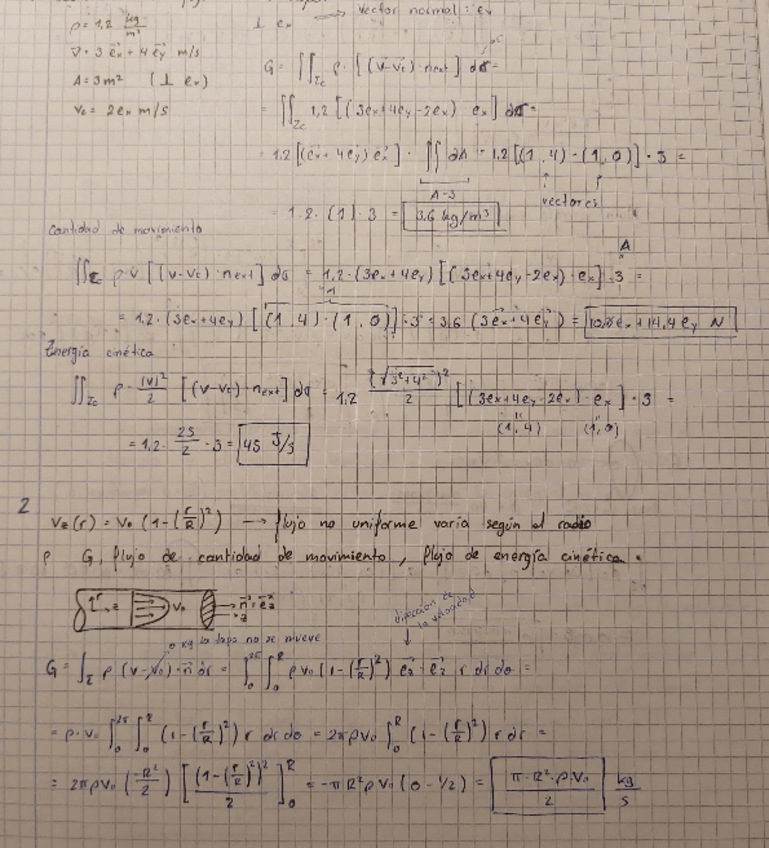 ρ = 1,2 kg/m³
⊥ eₓ → vector normal: eₓ
v = 3 e⃗ₓ + 4 e⃗ᵧ m/s
A = 3 m² (⊥ eₓ)
v_c = 2 eₓ m/s
G = ∬_Σc ρ · [(v⃗-v⃗_c) · n_ext] dσ =
= ∬_Σc 1,2 [(3eₓ+4eᵧ-2eₓ) eₓ] dσ =
= 1.2 [(e⃗ₓ + 4e⃗ᵧ) e⃗ₓ] · ∬ dA = 1.2 [(1, 4) · (1, 0)] · 3 =
A=3
vectores
= 1.2 · (1) · 3 = 3.6 kg/m³
cantidad de movimiento
∬_Σc ρ v [(v-v_c) · n_ext] dσ = 1.2 · (3eₓ+4eᵧ) [(3eₓ+4eᵧ-2eₓ) · eₓ] · 3 =
A
= 1.2 · (3eₓ+4eᵧ) [(1, 4) · (1, 0)] · 3 = 3.6 (3e⃗ₓ+4e⃗ᵧ) = 10,8 eₓ + 14,4 eᵧ N
Energía cinética
∬_Σc ρ · |v|²/2 [(v-v_c) · n_ext] dσ = 1,2 (√(3²+4²))²/2 [(3eₓ+4eᵧ-2eₓ) · eₓ] · 3 =
(1, 4) (1, 0)
= 1.2 · 25/2 · 3 = 45 J/s
2
v_z(r) = v₀ (1-(r/R)²) → flujo no uniforme varía según el radio
ρ G, flujo de cantidad de movimiento, flujo de energía cinética.
r z v₀ n⃗ = e⃗_z
z
dirección de la velocidad
la tapa no se mueve
G = ∫_Σ ρ (v-v_c) · n⃗ dσ = ∫₀^2π ∫₀^R ρ v₀ (1-(r/R)²) e⃗_z · e⃗_z r dr dθ =
= ρ · v₀ ∫₀^2π ∫₀^R (1-(r/R)²) r dr dθ = 2πρv₀ ∫₀^R (1-(r/R)²) r dr =
= 2πρv₀ (-R²/2) [(1-(r/R)²)²/2]₀^R = -πR²ρv₀ (0 - 1/2) = π·R²·ρ·v₀/2 kg/s